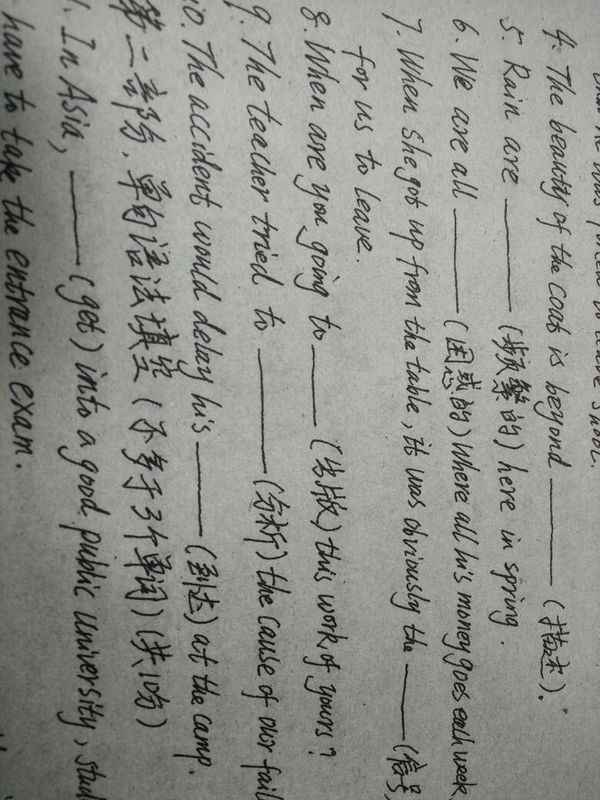 4. The beauty of the coat is beyond ______ (描述).
5. Rain are ______ (频繁的) here in spring.
6. We are all ______ (困惑的) where all his money goes each week
7. When she got up from the table, it was obviously the ______ (信号
for us to leave.
8. When are you going to ______ (出版) this work of yours?
9. The teacher tried to ______ (分析) the cause of our fail
10. The accident would delay his ______ (到达) at the camp.
第二部分,单句语法填空 (不多于3个单词) (共10分)
1. In Asia, ______ (get) into a good public university, stud
have to take the entrance exam.